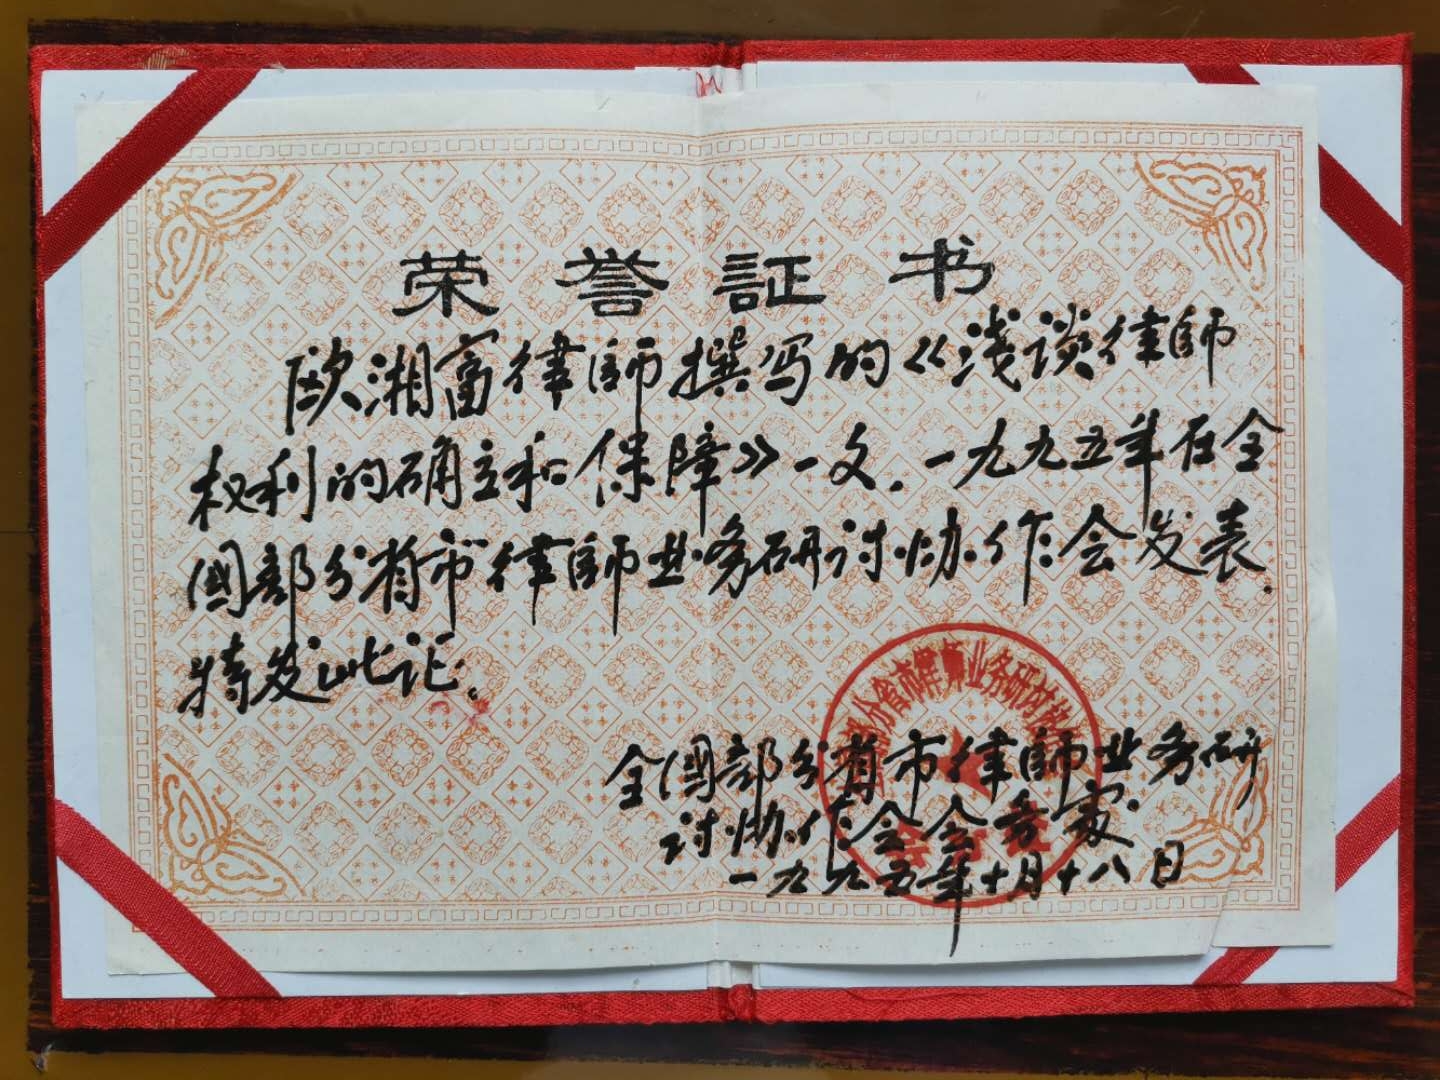 荣誉証书
欧湘富律师撰写的《浅谈律师
权利的确立和保障》一文.一九九五年在全
國部分省市律师业务研讨协作会发表.
特发此证。
全國部分省市律师业务研
讨协作会会务家
一九九五年十月十八日
部分省市律师业务研讨协
会务